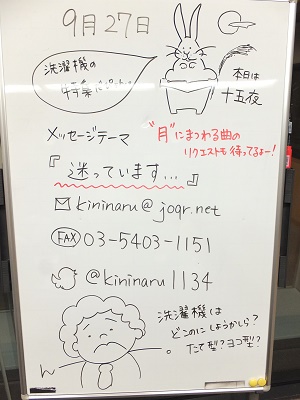 9月27日
洗濯機の
特集ですって
本日は
十五夜
メッセージテーマ
"月"にまつわる曲の
リクエストも待ってるよー!
『迷っています…』
kininaru@joqr.net
FAX 03-5403-1151
@kininaru1134
洗濯機は
どこのにしようかしら?
たて型?ヨコ型?
ん